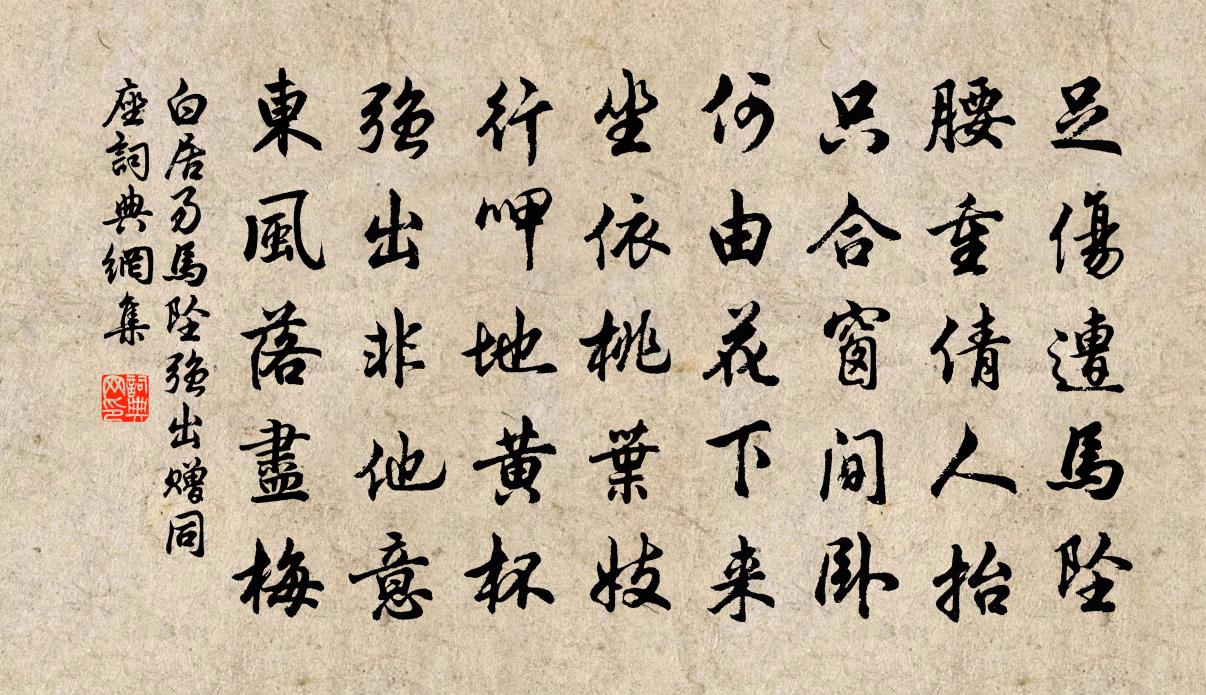 足傷遭馬墜
腰重倩人抬
只合窗間臥
何由花下来
坐依桃葉妓
行呷地黄杯
強出非他意
東風落盡梅
白居易馬墜強出贈同
座詞典網集
詞典
网印